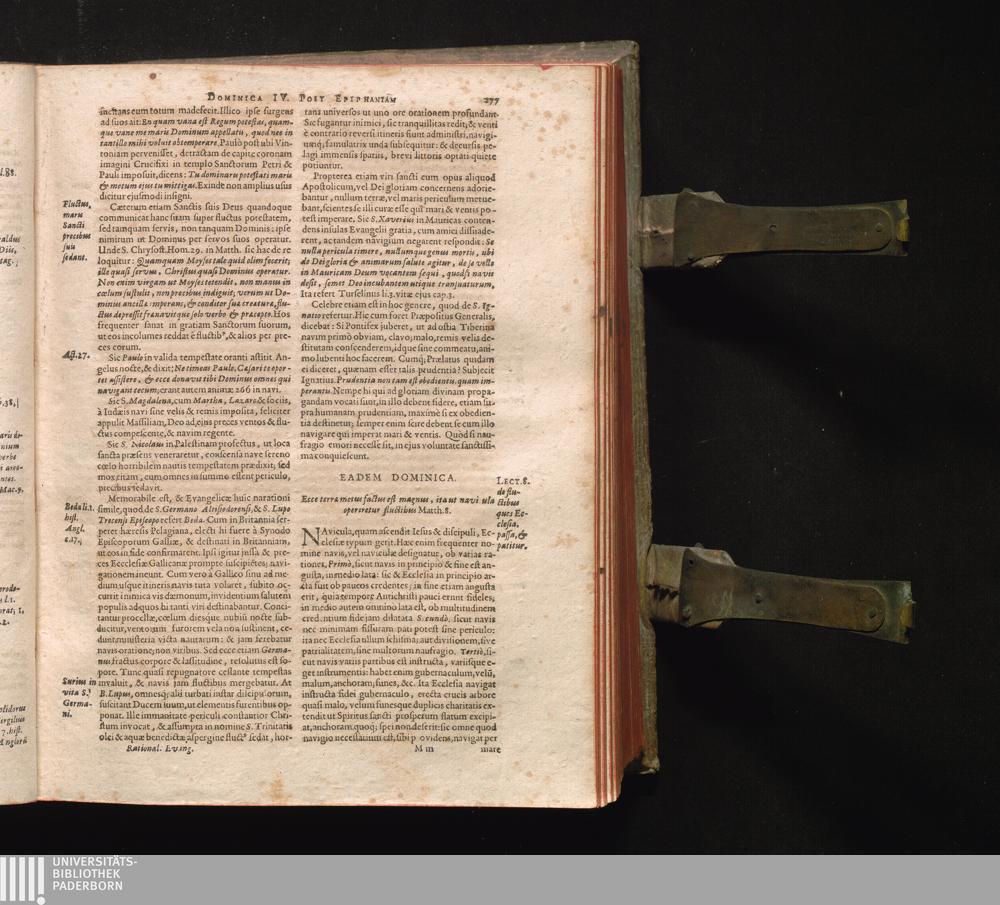 DOMINICA IV. POST EPIPHANIAM 277
inctans eum totum madefecit. Illico ipse surgens
ad suos ait: En quam vana est Regum potestas, quam-
que vane me maris Dominum appellatis, quod nec in
tantillo mihi voluit obtemperare. Paulò post ubi Vin-
toniam pervenisset, detractam de capite coronam
imagini Crucifixi in templo Sanctorum Petri &
Pauli imposuit, dicens: Tu dominaris potestati maris
& motum ejus tu mittigas. Exinde non amplius usus
dicitur ejusmodi insigni.
Fluctus,
maris
Sancti
precibus
suis
sedant.
Cæterum etiam Sanctis suis Deus quandoque
communicat hanc suam super fluctus potestatem,
sed tamquam servis, non tanquam Dominis: ipse
nimirum ut Dominus per servos suos operatur.
Unde S. Chrysost. Hom. 29. in Matth. sic hac de re
loquitur: Quamquam Moyses tale quid olim fecerit;
ille quasi servus, Christus quasi Dominus operatur.
Non enim virgam ut Moyses tetendit, non manus in
cœlum sustulit, non precibus indiguit; verum ut Do-
minus ancillæ imperans, & conditor suæ creaturæ, flu-
ctus depressit frænavitque solo verbo & præcepto. Hos
frequenter sanat in gratiam Sanctorum suorum,
ut eos incolumes reddat è fluctib9, & alios per pre-
ces eorum.
Act. 27.
Sic Paulo in valida tempestate oranti astitit An-
gelus nocte, & dixit: Ne timeas Paule, Cæsari te opor-
tet assistere, & ecce donavit tibi Dominus omnes qui
navigant tecum; erant autem animæ 266 in navi.
Sic S. Magdalena, cum Martha, Lazaro & sociis,
à Iudæis navi sine velis & remis imposita, feliciter
appulit Massiliam, Deo ad ejus preces ventos & flu-
ctus compescente, & navim regente.
Sic S. Nicolaus in Palestinam profectus, ut loca
sancta præsens veneraretur, conscensa nave sereno
cœlo horribilem nautis tempestatem prædixit; sed
mox etiam, cum omnes in summo essent periculo,
precibus sedavit.
Beda li. 1.
hist.
Angl.
c. 17.
Memorabile est, & Evangelicæ huic narationi
simile, quod de S. Germano Altisiodorensi, & S. Lupo
Trecensi Episcopo refert Beda. Cum in Britannia ser-
peret hæresis Pelagiana, electi hi fuere à Synodo
Episcoporum Galliæ, & destinati in Britanniam,
ut eos in fide confirmarent. Ipsi igitur jussa & pre-
ces Eccclesiæ Gallicanæ prompte suscipiẽtes; navi-
gationem ineunt. Cum vero à Gallico sinu ad me-
dium usque itineris navis tuta volaret, subito oc-
currit inimica vis dæmonum, invidentium salutem
populis ad quos hi tanti viri destinabantur. Conci-
tantur procellæ, cœlum diesque nubiũ nocte sub-
ducitur, ventorum furorem vela non sustinent, ce-
dunt ministeria victa nautarum: & jam ferebatur
navis oratione, non viribus. Sed ecce etiam Germa-
nus fractus corpore & lassitudine, resolutus est so-
pore. Tunc quasi repugnatore cessante tempestas
Surius in
vita S.
Germa-
ni.
invaluit, & navis jam fluctibus mergebatur. At
B. Lupus, omnesq; alii turbati instar discipulorum,
suscitant Ducem suum, ut elementis furentibus op-
ponat. Ille immanitate periculi constantior Chri-
stum invocat, & assumpta in nomine S. Trinitatis
olei & aquæ benedictæ aspergine fluct9 sedat, hor-
Rational. Evang.
tans universos ut uno ore orationem profundant.
Sic fugantur inimici, sic tranquillitas redit; & venti
è contrario reversi itineris fiunt administri, navigi-
umq; famulatrix unda subsequitur: & decursis pe-
lagi immensis spatiis, brevi littoris optati quiete
potiuntur.
Propterea etiam viri sancti cum opus aliquod
Apostolicum, vel Dei gloriam concernens adorie-
bantur, nullum terræ, vel maris periculum metue-
bant, scientes se illi curæ esse qui mari & ventis po-
test imperare. Sic S. Xaverius in Mauricas conten-
dens insulas Evangelii gratia, cum amici dissuade-
rent, ac tandem navigium negarent respondit: Se
nulla pericula timere, nullumque genus mortis, ubi
de Dei gloria & animarum salute agitur, de se velle
in Mauricam Deum vocantem sequi, quodsi navis
desit, semet Deo incubantem utique tranjuaturum,
Ita refert Turselinus li. 3. vitæ ejus cap. 3.
Celebre etiam est in hoc genere, quod de S. Ig-
natio refertur. Hic cum foret Præpositus Generalis,
dicebat: Si Pontifex juberet, ut ad ostia Tiberina
navim primò obviam, clavo, malo, remis velis de-
stitutam conscenderem, idque sine commeatu, ani-
mo lubenti hoc facerem. Cumq; Prælatus quidam
ei diceret, quænam esset talis prudentia? Subjecit
Ignatius. Prudentia non tam est obedientis, quam im-
perantis. Nempe hi qui ad gloriam divinam propa-
gandam vocati sunt, in illo debent fidere, etiam su-
pra humanam prudentiam, maximè si ex obedien-
tia destinetur; semper enim scire debent se cum illo
navigare qui imperat mari & ventis. Quòd si nau-
fragio emori necesse sit, in ejus voluntate sanctissi-
ma conquiescunt.
EADEM DOMINICA.
LECT. 8.
de flu-
ctibus
quos Ec-
clesia,
passa, &
patitur.
Ecce terra motus factus est magnus, ita ut navi ula
operiretur fluctibus Matth. 8.
NAvicula, quam ascendit Iesus & discipuli, Ec-
clesiæ typum gerit. Hæc enim frequenter no-
mine navis, vel naviculæ designatur, ob varias ra-
tiones, Primò, sicut navis in principio & fine est an-
gusta, in medio lata: sic & Ecclesia in principio ar-
cta fuit ob paucos credentes; in fine etiam angusta
erit, quia tempore Antichristi pauci erunt fideles;
in medio autem omnino lata est, ob multitudinem
credentium fide jam dilatata. Secundò, sicut navis
nec minimam fissuram pati potest sine periculo:
ita nec Ecclesia ullum schisma; aut divisionem, sive
patrialitatem, sine multorum naufragio. Tertiò, si-
cut navis variis partibus est instructa, variisque e-
get instrumentis: habet enim gubernaculum, velũ,
malum, anchoram, funes, &c. Ita Ecclesia navigat
instructa fidei gubernaculo, erecta crucis arbore
quasi malo, velum funesque duplicis charitatis ex-
tendit ut Spiritus sancti prosperum flatum excipi-
at, anchoram quoq; spei non deserit: sic omne quod
navigio necessarium est, sibi providens, navigat per
M m mare
UNIVERSITÄTS-
BIBLIOTHEK
PADERBORN